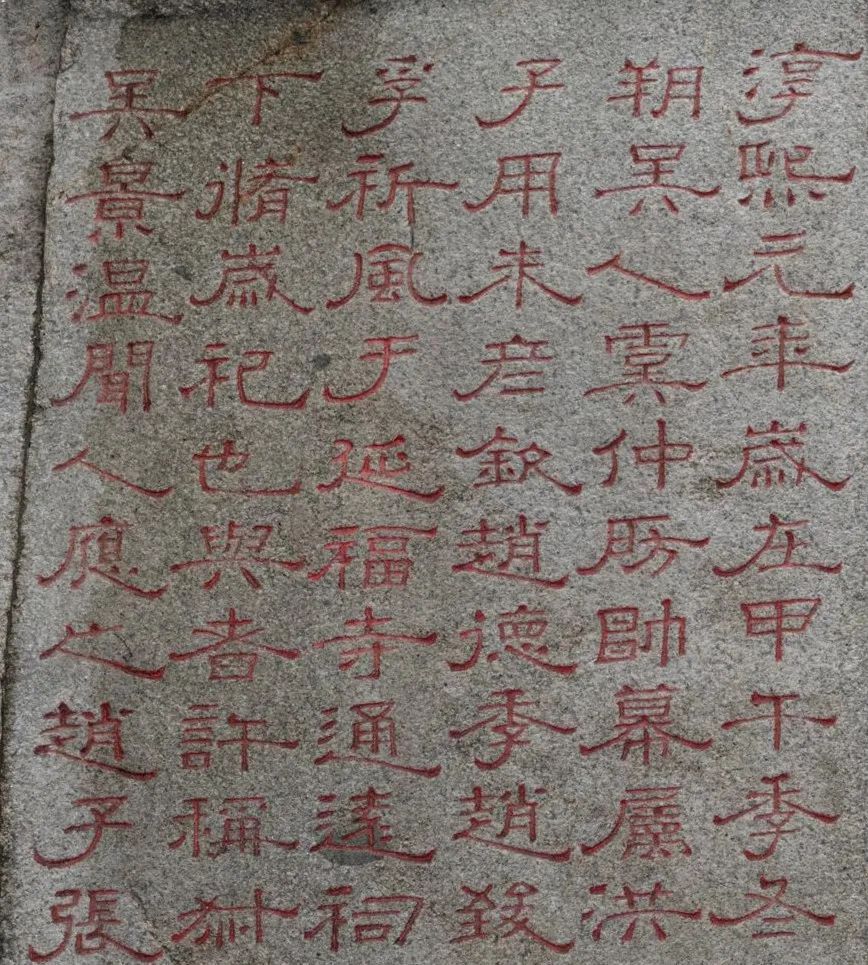 淳熙元年歲在甲午季冬
朔吳人虞仲房帥幕屬洪
子用朱彥欽趙德季趙致
孚祈風于延福寺通遠祠
下脩歲祀也與者許稱叔
吳景溫聞人應之趙子張